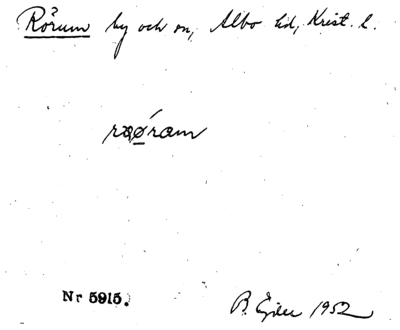 Rörum by och sn, Albo hd, Krist. l.
raǿram
Nr 5915.
B. Ejder 1952